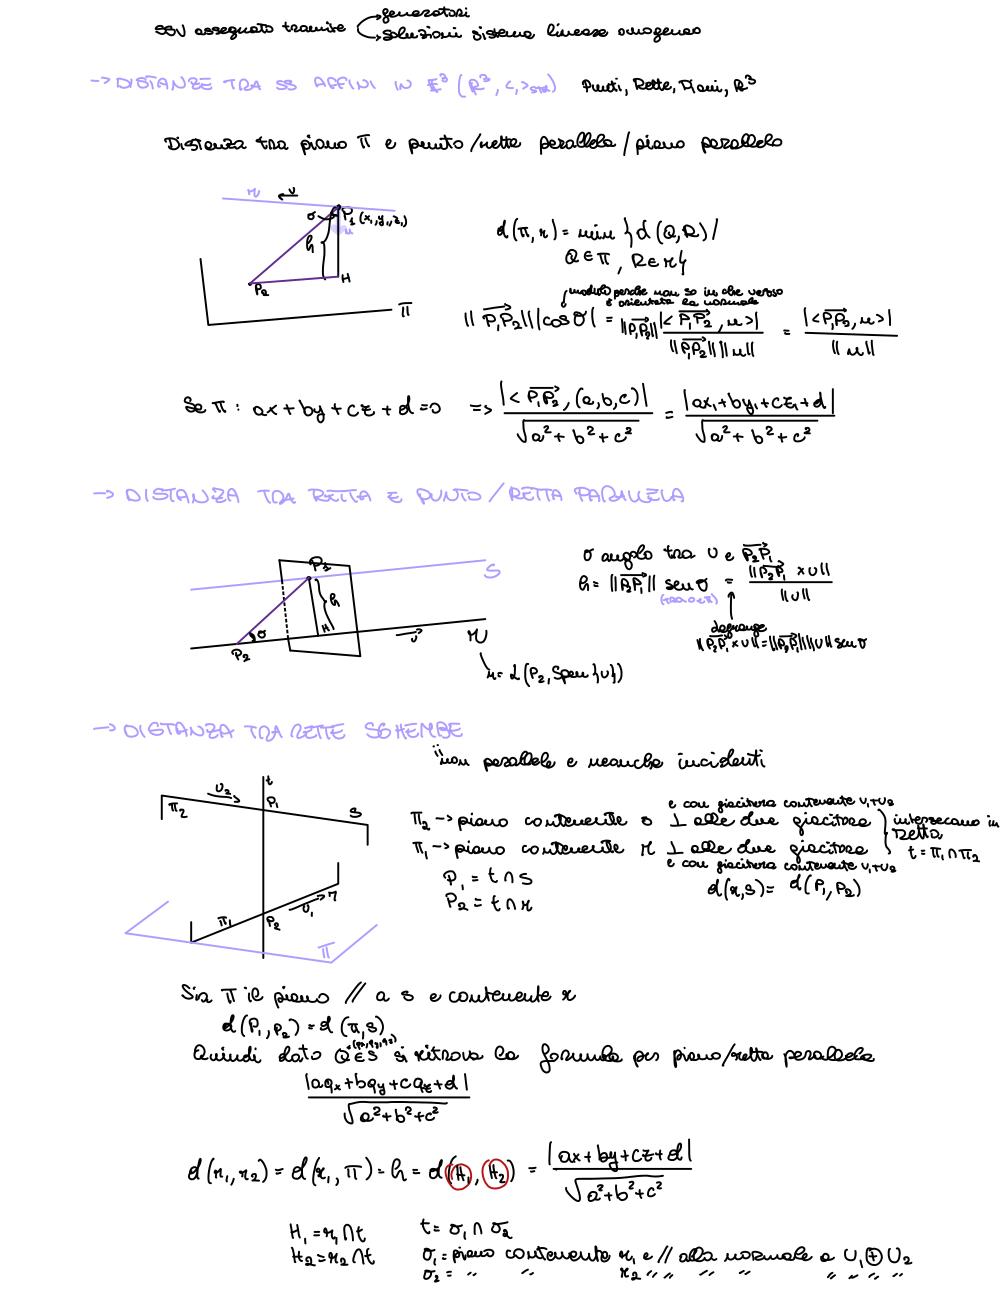 SSV assegnato tramite
generatori
soluzioni sistema lineare omogeneo
-> DISTANZE TRA SS AFFINI IN E³ (R³, <,>STD) Punti, Rette, Piani, R³
Distanza tra piano π e punto/retta parallela/piano parallelo
r v
θ P₁(x₁,y₁,z₁)
h
H
P₂
π
d(π,r) = min { d(Q,R) /
Q∈π, R∈r}
modulo perché non so in che verso
è orientata la normale
||P₁P₂|| |cosθ| = ||P₁P₂|| |<P₁P₂, n>| / ||P₁P₂|| ||n|| = |<P₁P₂, n>| / ||n||
Se π: ax+by+cz+d=0 => |<P₁P₂, (a,b,c)>| / √a²+b²+c² = |ax₁+by₁+cz₁+d| / √a²+b²+c²
-> DISTANZA TRA RETTA E PUNTO/RETTA PARALLELA
P₁
S
h
θ H
P₂
v
r
r = L(P₂, Span{v})
θ angolo tra v e P₂P₁
h = ||P₂P₁|| senθ = ||P₂P₁ × v|| / ||v||
(tra 0 e π)
Lagrange
||P₂P₁ × v|| = ||P₂P₁|| ||v|| senθ
-> DISTANZA TRA RETTE SGHEMBE
"non parallele e neanche incidenti
t
v₂
P₁
π₂
S
r
v₁
π₁
P₂
π
e con giacitura contenente v₁+v₂
π₂ -> piano contenente s ⊥ alle due giaciture
π₁ -> piano contenente r ⊥ alle due giaciture
e con giacitura contenente v₁+v₂
intersecano in
retta
t = π₁∩π₂
P₁ = t∩s
P₂ = t∩r
d(r,s) = d(P₁,P₂)
Sia π il piano // a s e contenente r
d(P₁,P₂) = d(π,s)
Quindi dato Q∈S si ritrova la formula per piano/retta parallela
|aqx+bqy+cqz+d| / √a²+b²+c²
d(r₁,r₂) = d(r₁,π) = h = d(H₁,H₂) = |ax+by+cz+d| / √a²+b²+c²
H₁ = r₁∩t t = σ₁∩σ₂
H₂ = r₂∩t σ₁ = piano contenente r₁ e // alla normale a U₁⊕U₂
σ₂ = " " r₂ " " " " " " " "